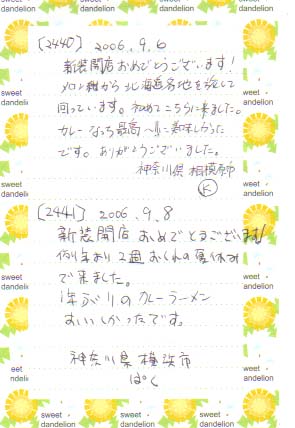 [2440] 2006.9.6
新装開店おめでとうございます!
から北海道各地を旅して
回っています。初めてこちらに来ました。
カレーなっち最高〜!!に美味しかった
です。ありがとうございました。
神奈川県 相模原市
K
[2441] 2006.9.8
新装開店 おめでとうございます!
例年より2週おくれの夏休み
で来ました。
1年ぶりのカレーラーメン
おいしかったです。
神奈川県横浜市
ぱく
sweet dandelion